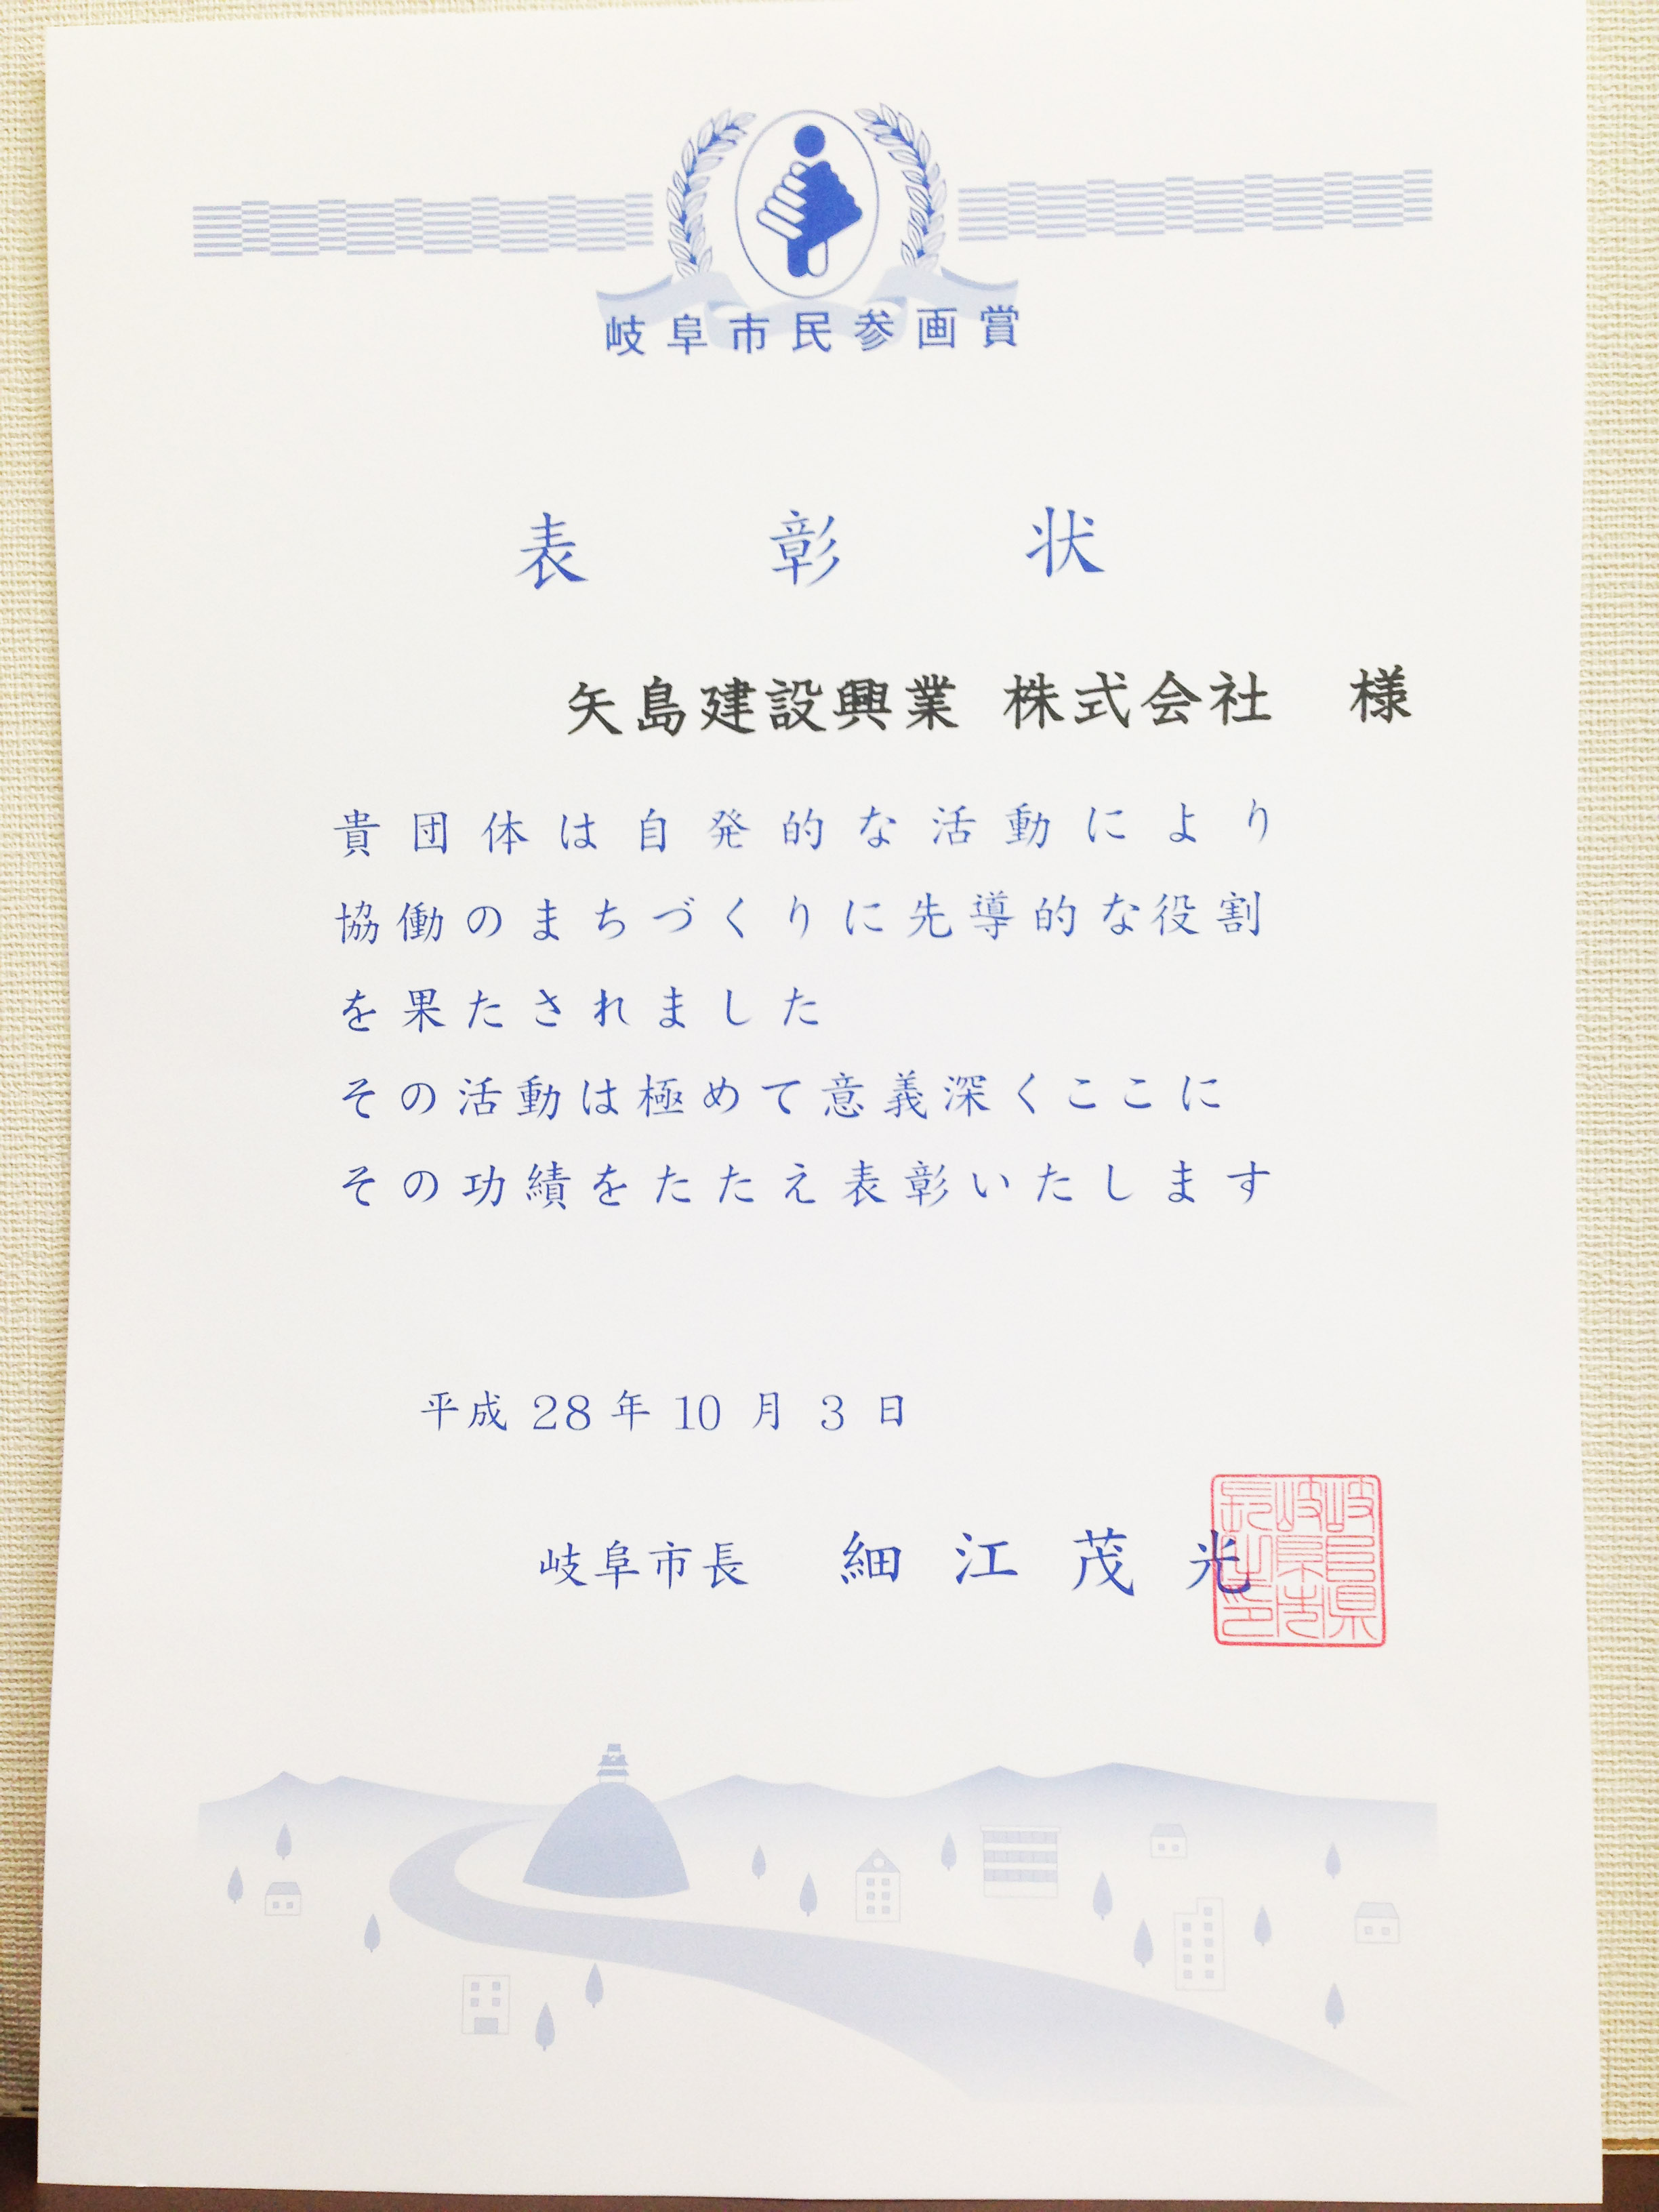 岐阜市民参画賞
表彰状
矢島建設興業 株式会社 様
貴団体は自発的な活動により
協働のまちづくりに先導的な役割
を果たされました
その活動は極めて意義深くここに
その功績をたたえ表彰いたします
平成 28 年 10 月 3 日
岐阜市長 細江茂光
岐阜県
岐阜市
長之印